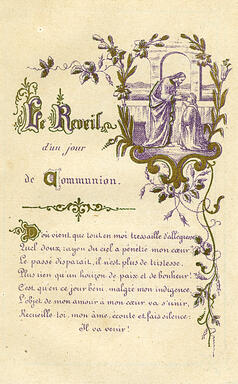 Le Reveil
d'un jour
de Communion.
D'où vient que tout en moi tressaille d'allégresse
Quel doux rayon du ciel a pénétré mon cœur?
Le passé disparait, il n'est plus de tristesse.
Plus rien qu'un horizon de paix et de bonheur!
C'est qu'en ce jour béni, malgré mon indigence
L'objet de mon amour à mon cœur va s'unir,
Recueille-toi, mon âme, écoute et fais silence:
Il va venir!